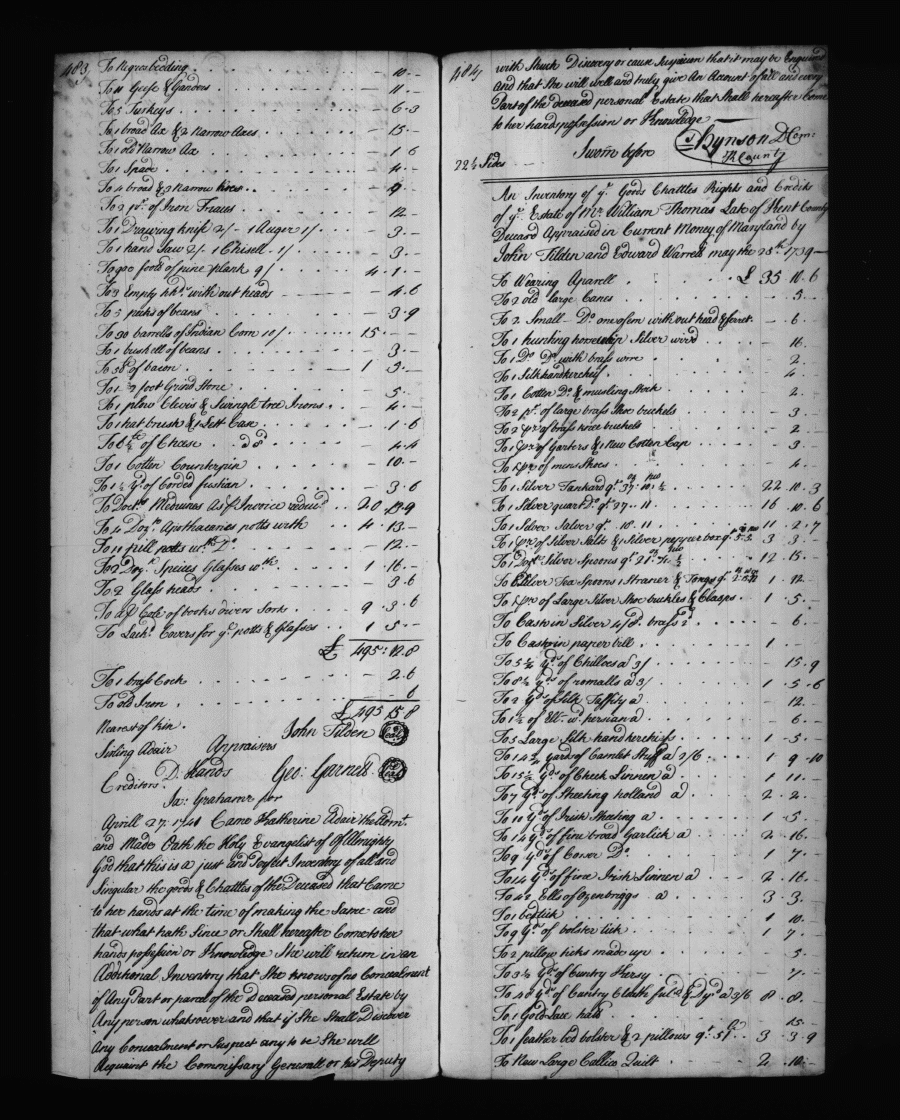 483
To Negros bedding - 10 -
To 11 Geese & Ganders - 11 -
To 5 Turkeys - 6 - 3
To 1 broad Ax & 2 Narrow Axes - 15 -
To 1 old Narrow Ax 1 6
To 1 Spade - 4 -
To 4 broad & 3 Narrow hoes - 9 -
To 2 pr. of Iron Traces - 12 -
To 1 Drawing knife 2/- 1 Auger 1/- - 3 -
To 1 hand Saw 2/- 1 Chisell 1/- - 3 -
To 900 foots of pine plank 9/ 4 - 1 -
To 3 Empty hhds. without heads - 4 - 6
To 5 pecks of beans - 3 - 9
To 30 barrells of Indian Corn 10/ 15 - -
To 1 bushell of beans - 3 -
To of bacon 1 3 -
To 1 foot Grind Stone - 5 -
To 1 plow Clevis & Swingle tree Irons - 4 -
To 1 hat brush & Case - 1 - 6
To of Cheese 4 - 4
To 1 Cotten Counterpin - 10 -
To yd. of Corded fustian - 3 - 6
To Doctrs. Medicines As p Invoice 20
To 4 Dozn. Apothacaries potts with 4 - 13 -
To 11 pill potts wth. Do. - 12 -
To 2 Dozn. Species Glasses wth. 1 - 16 -
To 2 Glass heads - 3 - 6
To of books divers Sorts 9 - 3 - 6
To Covers for ye. potts & Glasses 1 5 -
£ 495 : 12 . 8
To 1 brass Cock - 2 . 6
To old Iron 6
£ 495 15 8
Nearest of kin John Tilden
Sirling Adair Appraisers
Creditors D. Hands Geo: Garnett
Ja: Grahame
Aprill 27. 1741 Came Katherine Adair the Admt.
and Made Oath the Holy Evangelist of Allmighty
God that this is a just and Perfect Inventory of all and
Singular the goods & Chattles of the Deceased that Came
to her hands at the time of making the Same and
that what hath Since or Shall hereafter Come to her
hands possession or Knowledge She will return in an
Additional Inventory that She knows of no Concealment
of Any Part or parcel of the Deceased personal Estate by
Any person whatsoever and that if She Shall Discover
any Concealment or Suspect any to be She will
Acquaint the Commissary Generall or his Deputy
484
with Shuch Discovery or cause Suspicion that it may be Enquired
And that She will well and truly give An Account of all and every
Part of the deceased personal Estate that Shall hereafter Come
to her hands possession or Knowledge
22½ Sides Sworn before Hynson D Com:
K County
An Inventory of ye. Goods Chattles Rights and Credits
of ye. Estate of Mr. William Thomas Late of Kent County
Deceasd Appraised in Current Money of Maryland by
John Tilden and Edward Warrell may the 28th. 1739
To Wearing Aparell £ 35 . 10 . 6
To 2 old large Canes - 5 . -
To 2 Small Do. one of em without head & ferret - 6 . -
To 1 hunting horn Silver - 16 .
To 1 Do. Do. with brass wire - 2 .
To 1 Silk handkercheif - 4 -
To 1 Cotten Do. & musling Stock - 2 .
To 2 pr. of large brass Shoe buckels - 3 -
To 2 pr of brass knee buckels - 2 -
To 1 pr of Garters & 1 New Cotten Cap - 3 -
To 1 pr of mens Shoes - 4 -
To 1 Silver Tankard qt. 22 - 10 . 3
To 1 Silver quart Do. qt. 27 . 11 16 . 10 . 6
To 1 Silver Salver qt. 18 . 11 11 - 2 . 7
To 1 pr of Silver Salts & 1 Silver pepper box qt. 3 3 -
To 1 Dozn Silver Spoons qt. 12 . 15 . -
To Silver Tea Spoons 1 Strainer & Tongs qt. 1 . 12 .
To 1 pr of Large Silver Shoe buckles & Clasps 1 . 5 . -
To Cash in Silver brass - 6 -
To Cash in paper bill 1 .
To 5¼ yds. of Chilloes a 3/ - 15 . 9
To 8½ yds. of romalls a 3/ 1 . 5 . 6
To 2 yds of Silk Taffity a - 12 -
To 1½ of Ell. wd. persian a - 6 -
To 5 Large Silk handkercheifs 1 - 5 -
To yards of Camlet Stuff a 2/6 1 9 - 10
To 15½ yds. of Check Linnen a 1 11 -
To 7 yds. of Sheeting holland a 2 . 2 .
To 10 yds of Irish Sheeting a 1 - 5 -
To 14 yds. of fine broad Garlick a 2 - 16 .
To 9 yds of Do. 1 7 . -
To 14 yds. of fine Irish Linnen a 2 . 16 .
To 42 Ells of Ozenbriggs a 3 3 .
To 1 bed tick 1 10 -
To 9 yds. of bolster tick 1 7 -
To 2 pillow ticks made up - 5 -
To 3½ yds. of Cuntry Kersy 7 -
To 48 yds. of Cuntry Cloath & a 3/6 8 . 8 . -
To 1 Gold Lace hatt 15 -
To 1 feather bed bolster & 2 pillows qt. 3 . 3 . 9
To New Large Callico Quilt 2 . 10 -